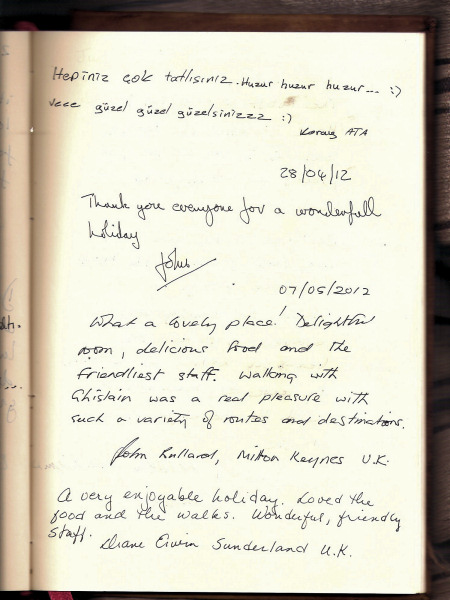 Hepiniz çok tatlısınız. Huzur huzur huzur... :)
veee güzel güzel güzelsinizzz :)
ATA
28/04/12
Thank you everyone for a wonderfull
holiday
John
07/05/2012
What a lovely place! Delightful
room, delicious food and the
friendliest staff. Walking with
Ghislain was a real pleasure with
such a variety of routes and destinations.
John Bullard, Milton Keynes U.K.
A very enjoyable holiday. Loved the
food and the walks. Wonderful, friendly
staff.
Diane Erwin Sunderland U.K.